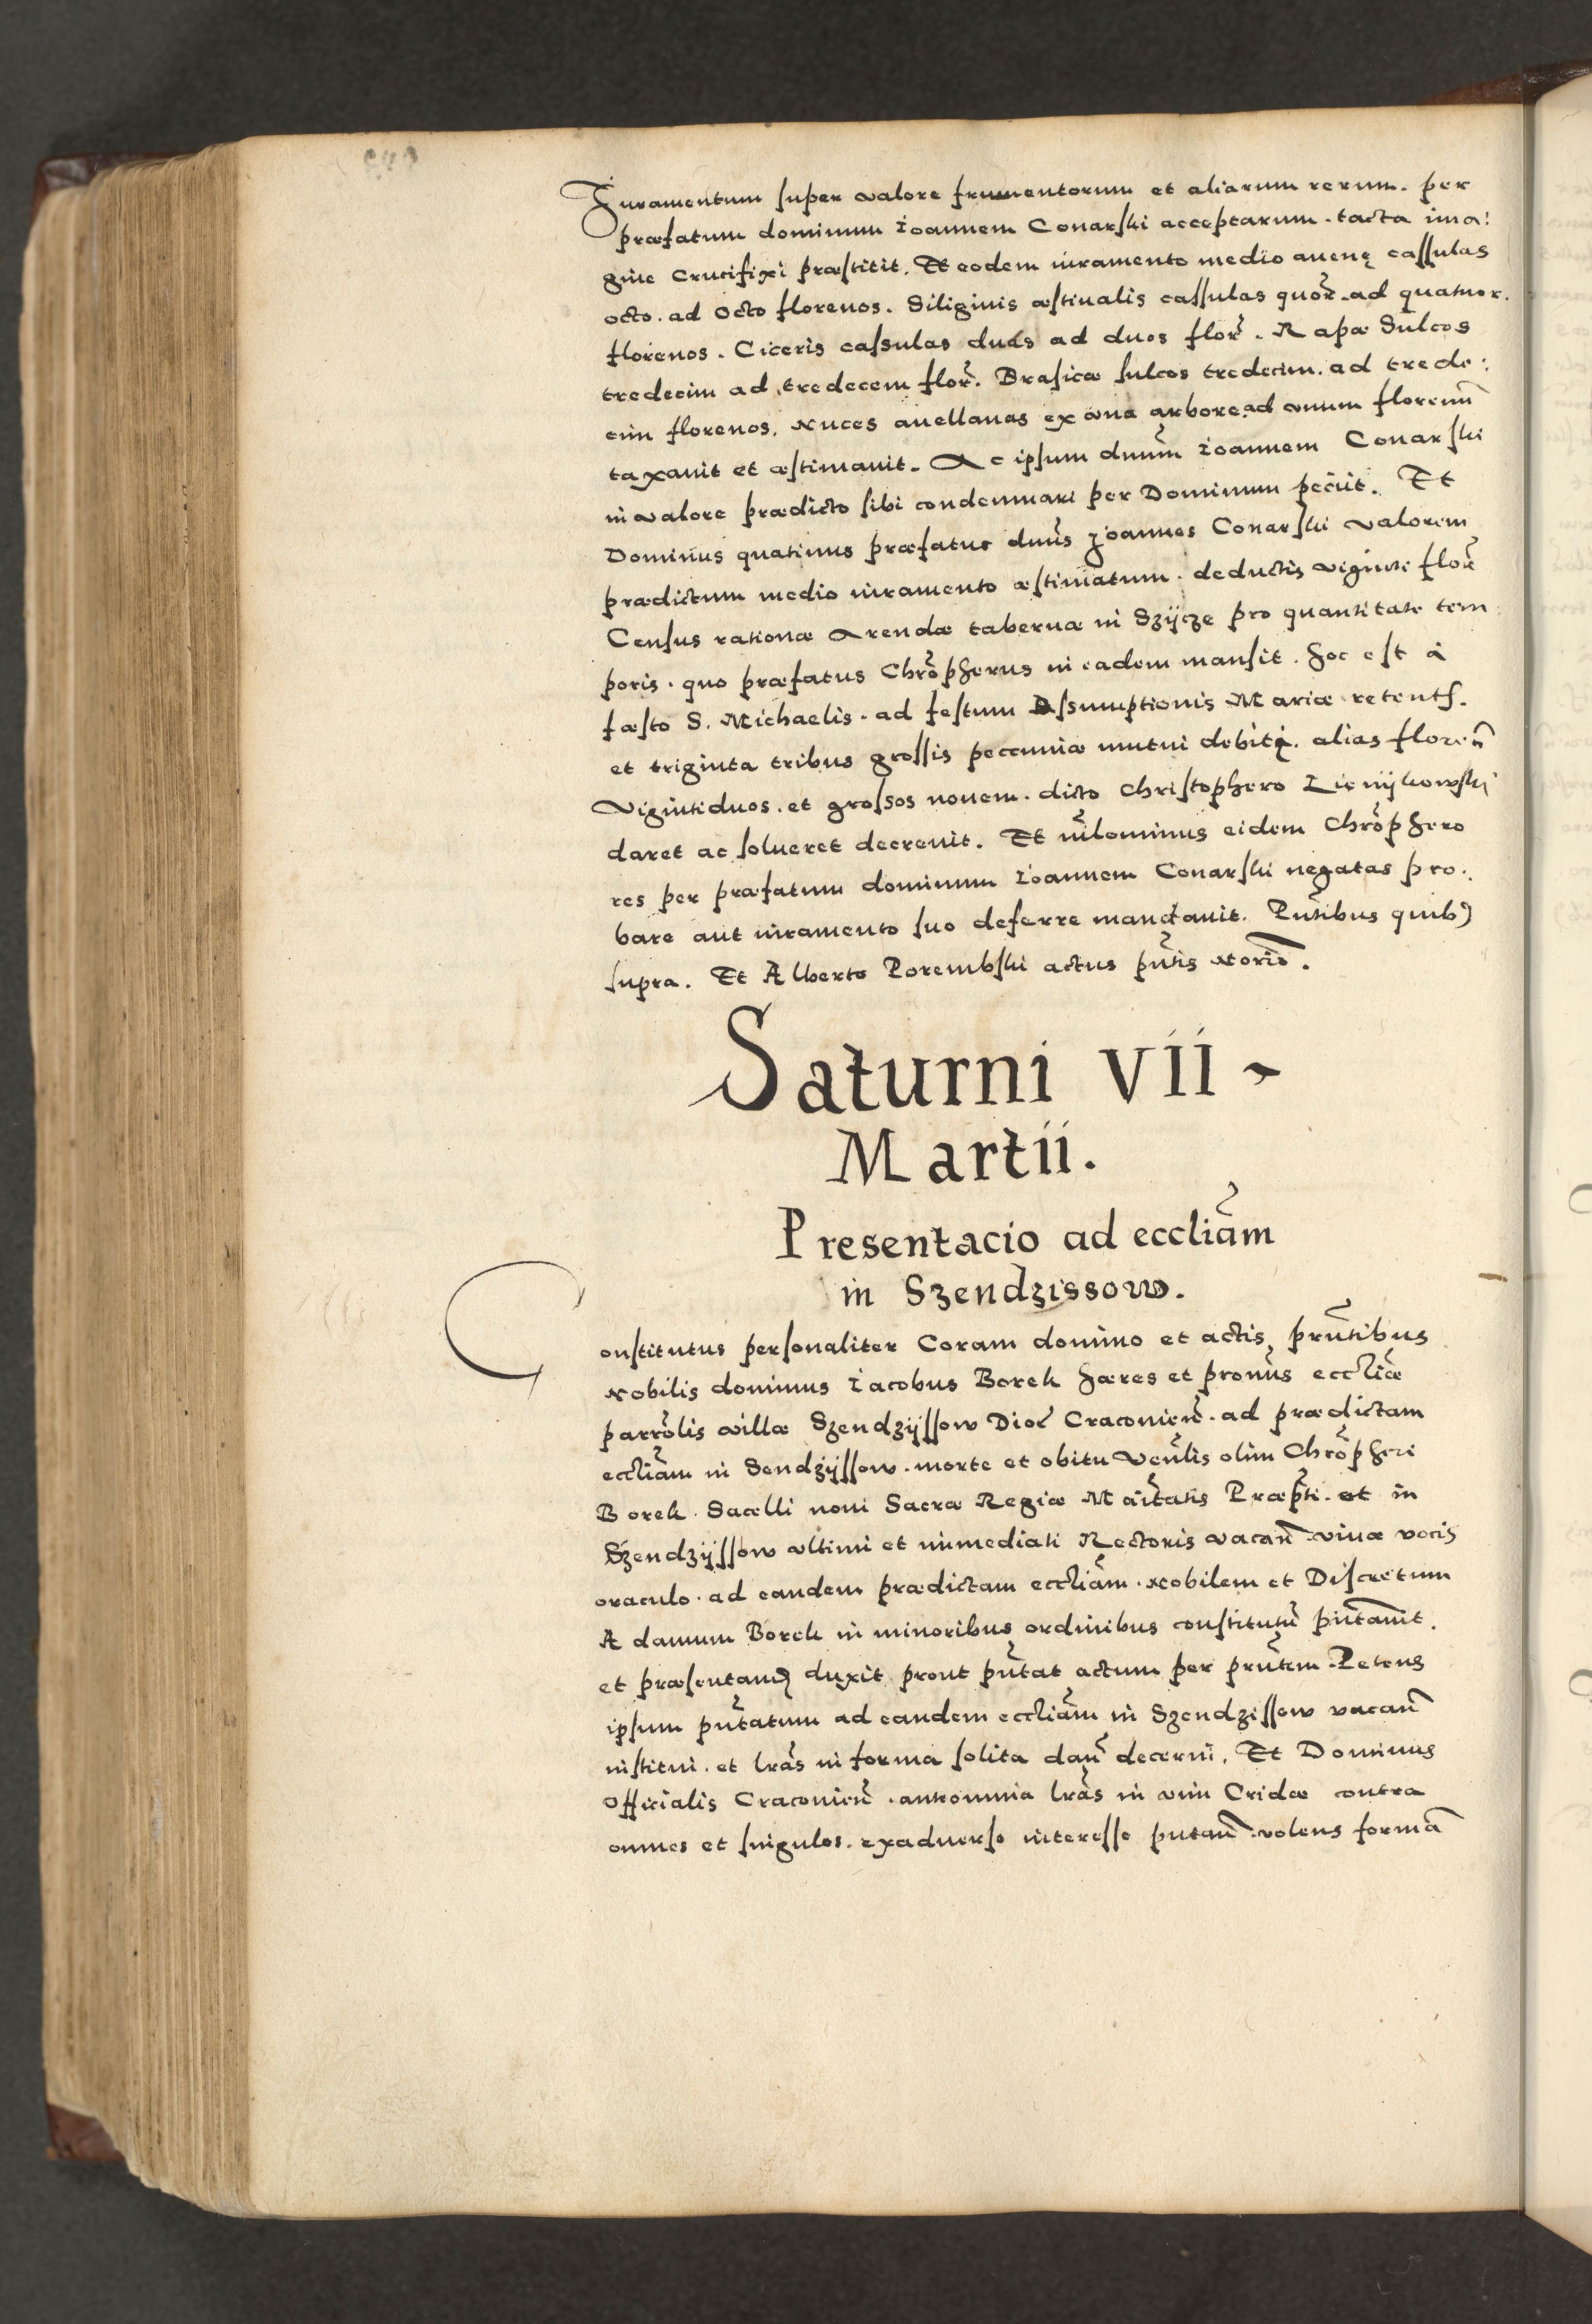 Iuramentum super valore frumentorum et aliarum rerum. per
præfatum dominum Ioannem Conarski acceptarum. tacta ima:
gine Crucifixi præstitit. Et eodem iuramento medio auenę cassulas
octo. ad Octo florenos. Siliginis æstiualis cassulas quor̃. ad quatuor.
florenos. Ciceris cassulas duas ad duos flor̃. Rapæ Sulcos
tredecim ad tredecem flor̃. Brasicæ sulcos tredecim. ad trede:
cim florenos. Nuces auellanas ex vna arbore ad vnum florenũ
taxauit et æstimauit. Ac ipsum dnũm Ioannem Conarski
in valore prædicto sibi condemnari per Dominum peciit. Et
Dominus quatinus præfatus dnũs Joannes Conarski valorem
prædictum medio iuramento æstimatum. deductis viginti flor̃
Census rationæ Arendæ tabernæ in Szijcze pro quantitate tem
poris. quo præfatus Chrõpherus in eadem mansit. hoc est à
fæsto S. Michaelis. ad festum Assumptionis Mariæ retentſ.
et triginta tribus grossis peccuniæ mutui debitę. alias floreñ
Vigintiduos. et grossos nouem. dicto Christophero Lienijkowski
daret ac solueret decreuit. Et niĩlominus eidem Chrõphero
res per præfatum dominum Ioannem Conarski negatas pro.
bare aut iuramento suo deferre mandauit. Pñtibus quibꝰ
supra. Et Alberto Porembski actus pñtis Notoriõ.
Saturni VII
Martii.
Presentacio ad eccliãm
in Szendzissow.
Constitutus personaliter Coram domino et actis prñtibus
Nobilis dominus Iacobus Borek hæres et pronũs eccliæ̃
parrõlis villæ Szendzijssow Dioc̃ Craconieñ. ad prædictam
eccliãm in Sendzijssow. morte et obitu Veñlis olim Chrõpheri
Borek. Sacelli noui Sacræ Regiæ Maĩtatis Præpt̃i. et in
Szendzijssow vltimi et immediati Rectoris vacañ viuæ vocis
oraculo. ad eandem prædictam eccliãm. Nobilem et Discretum
Adamum Borek in minoribus ordinibus constitutũ pñtauit.
et præsentandꝭ duxit prout pñtat actum per prñtem. Petens
ipsum pñtatum ad eandem eccliãm in Szendzissow vacañ
institui. et lrãs in forma solita dañ decerni. Et Dominus
Officialis Craconieñ. anteomnia lrãs in vim Cridæ contra
omnes et singulos. exaduerso interesse putañ. volens formã